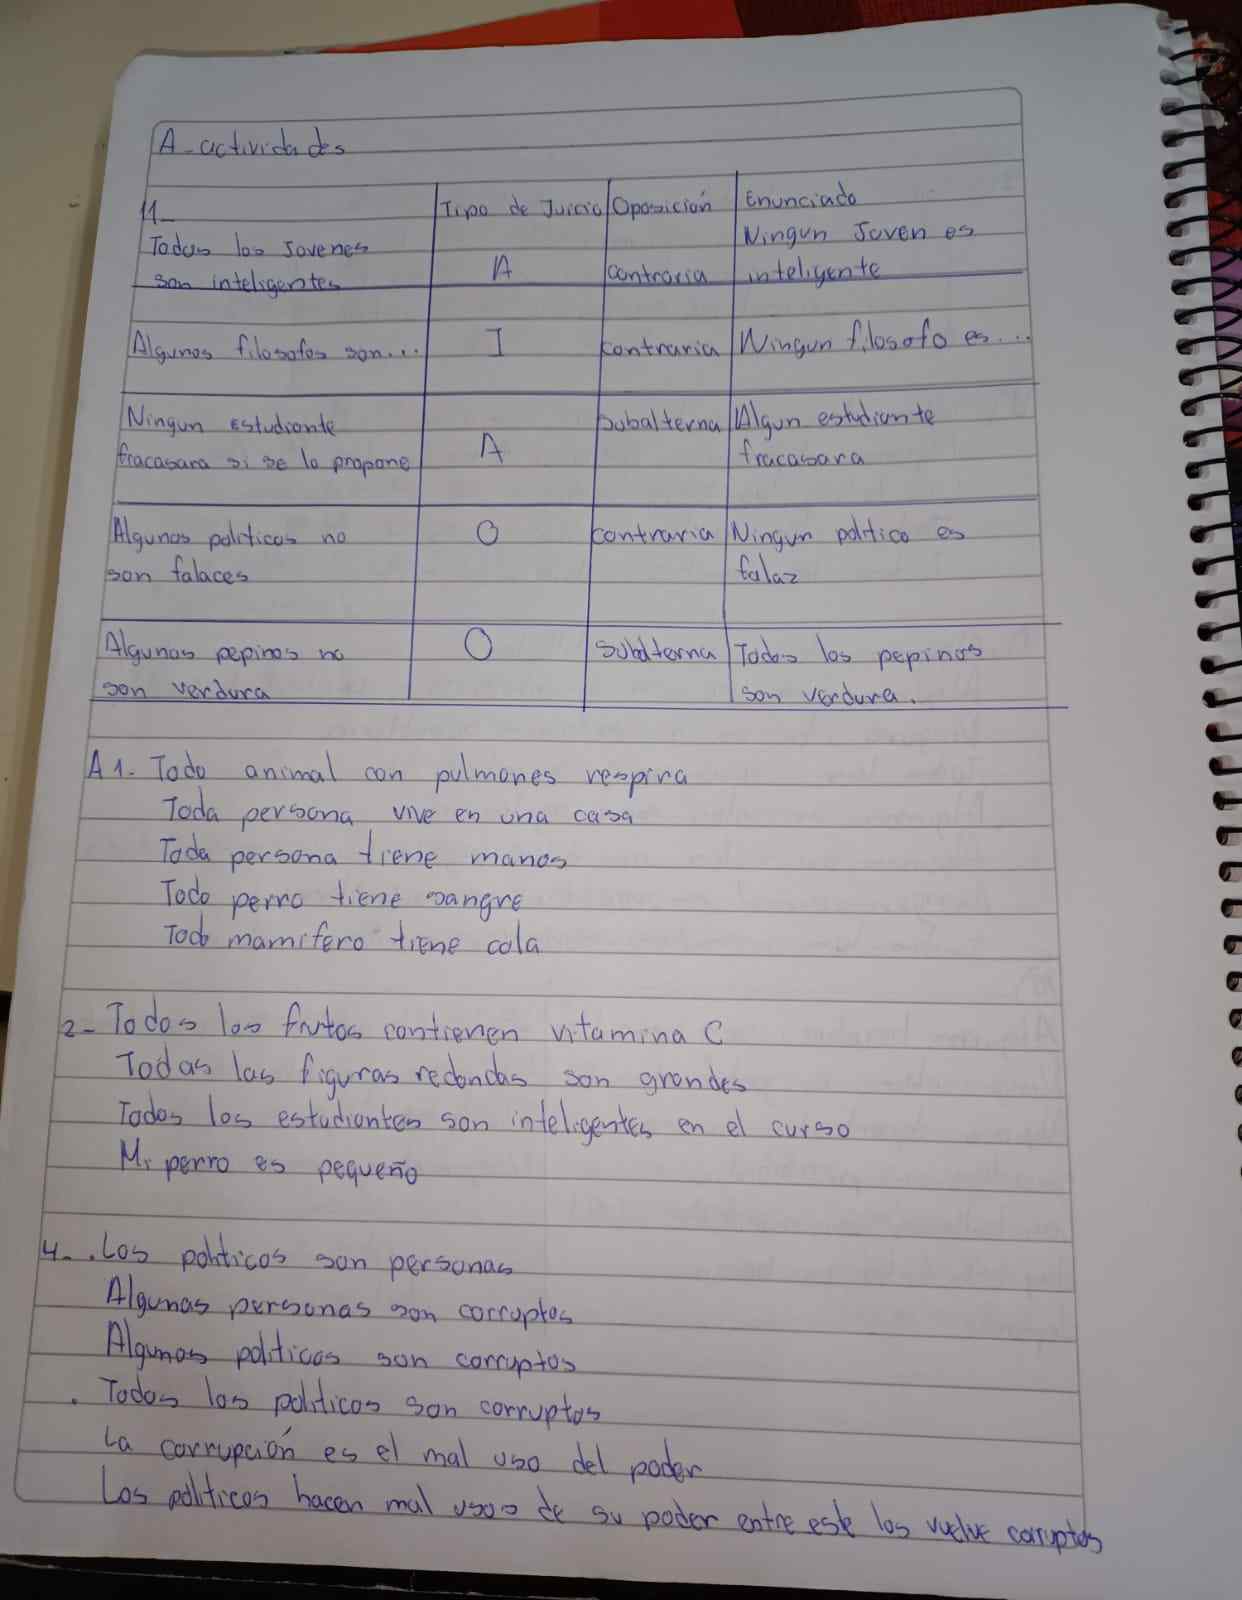 A - actividades
11- Tipo de Juicio Oposición Enunciado
Todos los Jovenes son inteligentes A contraria Ningun Joven es inteligente
Algunos filosofos son... I contraria Ningun filosofo es...
Ningun estudiante fracasara si se lo propone A subalterna Algun estudiante fracasara
Algunos politicos no son falaces O contraria Ningun politico es falaz
Algunos pepinos no son verdura O Subalterna Todos los pepinos son verdura.
A 1. Todo animal con pulmones respira
Toda persona vive en una casa
Toda persona tiene manos
Todo perro tiene sangre
Todo mamifero tiene cola
2- Todos los frutos contienen vitamina C
Todas las figuras redondas son grandes
Todos los estudiantes son inteligentes en el curso
Mi perro es pequeño
4- . Los politicos son personas
Algunas personas son corruptos
Algunos politicos son corruptos
. Todos los politicos son corruptos
La corrupción es el mal uso del poder
Los politicos hacen mal usos de su poder entre este los vuelve corruptos